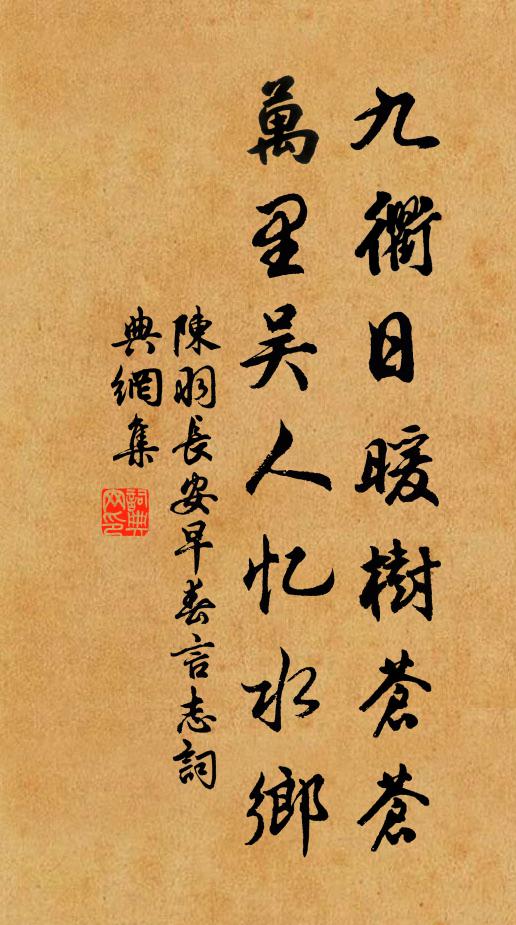 九衢日暖樹蒼蒼
萬里吴人忆水鄉
陳羽長安早春言志詞
典網集
詞典网印